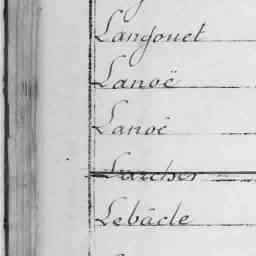 Langouet
Lanoë
Lanoë
Larcher
Lebâcle